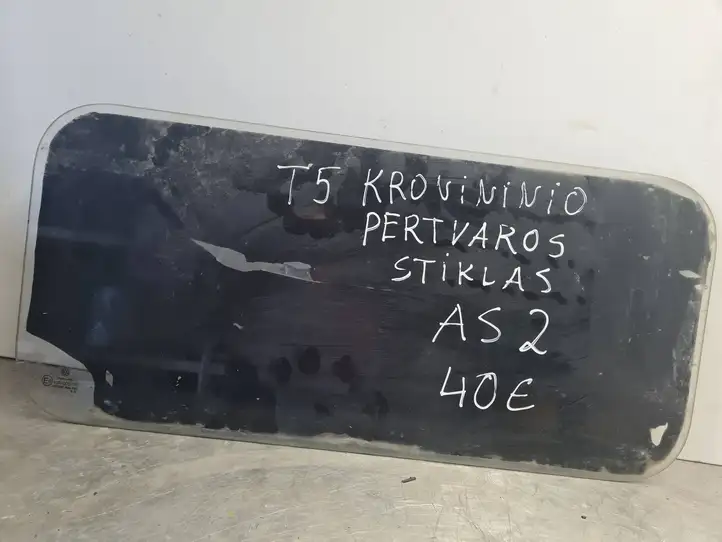 T5 KROVININIO
PERTVAROS
STIKLAS
AS2
40€